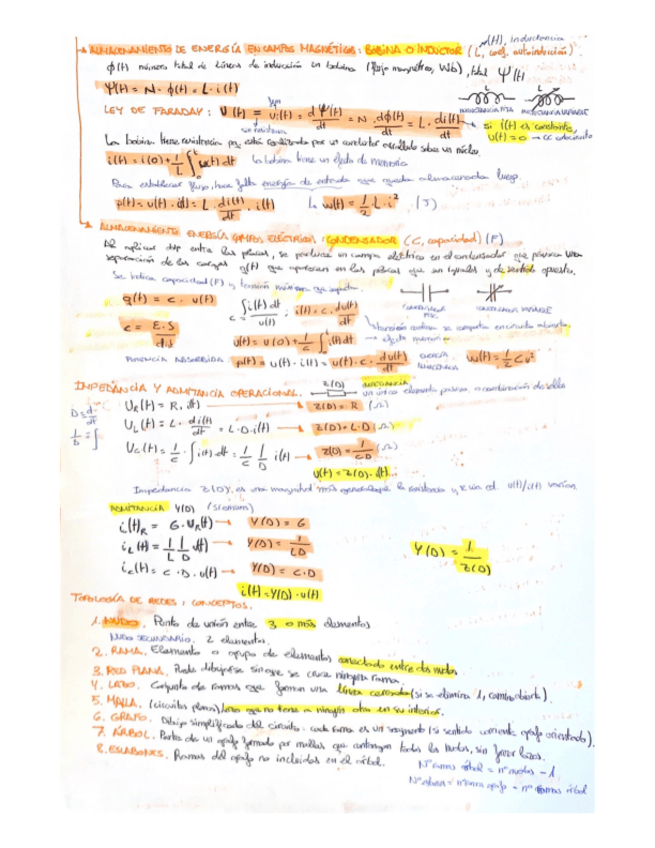 ALMACENAMIENTO DE ENERGÍA EN CAMPOS MAGNÉTICOS: BOBINA O INDUCTOR (L, coef. autoinducción)
(H), inductancia
ϕ(t) número total de líneas de inducción en bobina (flujo magnético, Wb), total Ψ(t)
Ψ(t) = N · ϕ(t) = L · i(t)
INDUCTANCIA FIJA INDUCTANCIA VARIABLE
LEY DE FARADAY: U(t) = U_i(t) = dΨ(t)/dt = N · dϕ(t)/dt = L · di(t)/dt → si i(t) es constante,
U(t) = 0 → CC
La bobina tiene resistencia pq está constituida por un conductor arrollado sobre un núcleo.
i(t) = i(0) + 1/L ∫ u(t) dt La bobina tiene un efecto de memoria
Para establecer flujo, hace falta energía de entrada que queda almacenada luego.
p(t) = u(t) · i(t) = L · di(t)/dt · i(t) w(t) = 1/2 L · i² (J)
ALMACENAMIENTO ENERGÍA CAMPOS ELÉCTRICOS: CONDENSADOR (C, capacidad) (F)
Al aplicar ddp entre las placas, se produce un campo eléctrico en el condensador que provoca una
separación de las cargas q(t) que aparecen en las placas que son iguales y de sentido opuesto.
Se indica capacidad (F) y tensión máxima que soporta.
q(t) = C · u(t) C = ∫i(t) dt / u(t) ; i(t) = C · du(t)/dt
CONDENSADOR FIJO CONDENSADOR VARIABLE
C = E·S/d
u(t) = u(0) + 1/C ∫ i(t) dt → efecto memoria
POTENCIA ABSORBIDA: p(t) = u(t) · i(t) = u(t) · C · du(t)/dt ENERGÍA ALMACENADA w(t) = 1/2 C u²
IMPEDANCIA Y ADMITANCIA OPERACIONAL. Z(D) IMPEDANCIA
un único elemento pasivo, o combinación de ellos
D = d/dt
1/D = ∫
U_R(t) = R · i(t) → Z(D) = R (Ω)
U_L(t) = L · di(t)/dt = L · D · i(t) → Z(D) = L · D (Ω)
U_C(t) = 1/C · ∫ i(t) dt = 1/C 1/D i(t) → Z(D) = 1/CD (Ω)
U(t) = Z(D) · i(t)
Impedancia Z(D), es una magnitud más general que la resistencia, y u(t)/i(t) varían.
ADMITANCIA Y(D) (Siemens)
i(t)_R = G · U_R(t) → Y(D) = G
i_L(t) = 1/L 1/D u(t) → Y(D) = 1/LD
i_C(t) = C · D · u(t) → Y(D) = C · D
Y(D) = 1/Z(D)
i(t) = Y(D) · u(t)
TOPOLOGÍA DE REDES: CONCEPTOS.
1. NUDO. Punto de unión entre 3 o más elementos
NUDO SECUNDARIO. 2 elementos.
2. RAMA. Elemento o grupo de elementos conectado entre dos nudos.
3. RED PLANA. Puede dibujarse sin que se cruce ninguna rama.
4. LAZO. Conjunto de ramas que forman una línea cerrada (si se elimina 1, camino abierto).
5. MALLA. (circuitos planos) lazo que no tiene a ningún otro en su interior.
6. GRAFO. Dibujo simplificado del circuito. cada rama es un segmento (si sentido corriente, grafo orientado).
7. ÁRBOL. Partes de un grafo formado por ramas que contengan todos los nudos, sin formar lazos.
8. ESLABONES. Ramas del grafo no incluidas en el árbol.
Nº ramas árbol = nº nudos - 1.
nº ramas grafo - nº ramas árbol